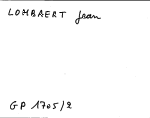 LOMBAERT Jean
GP 1705/2